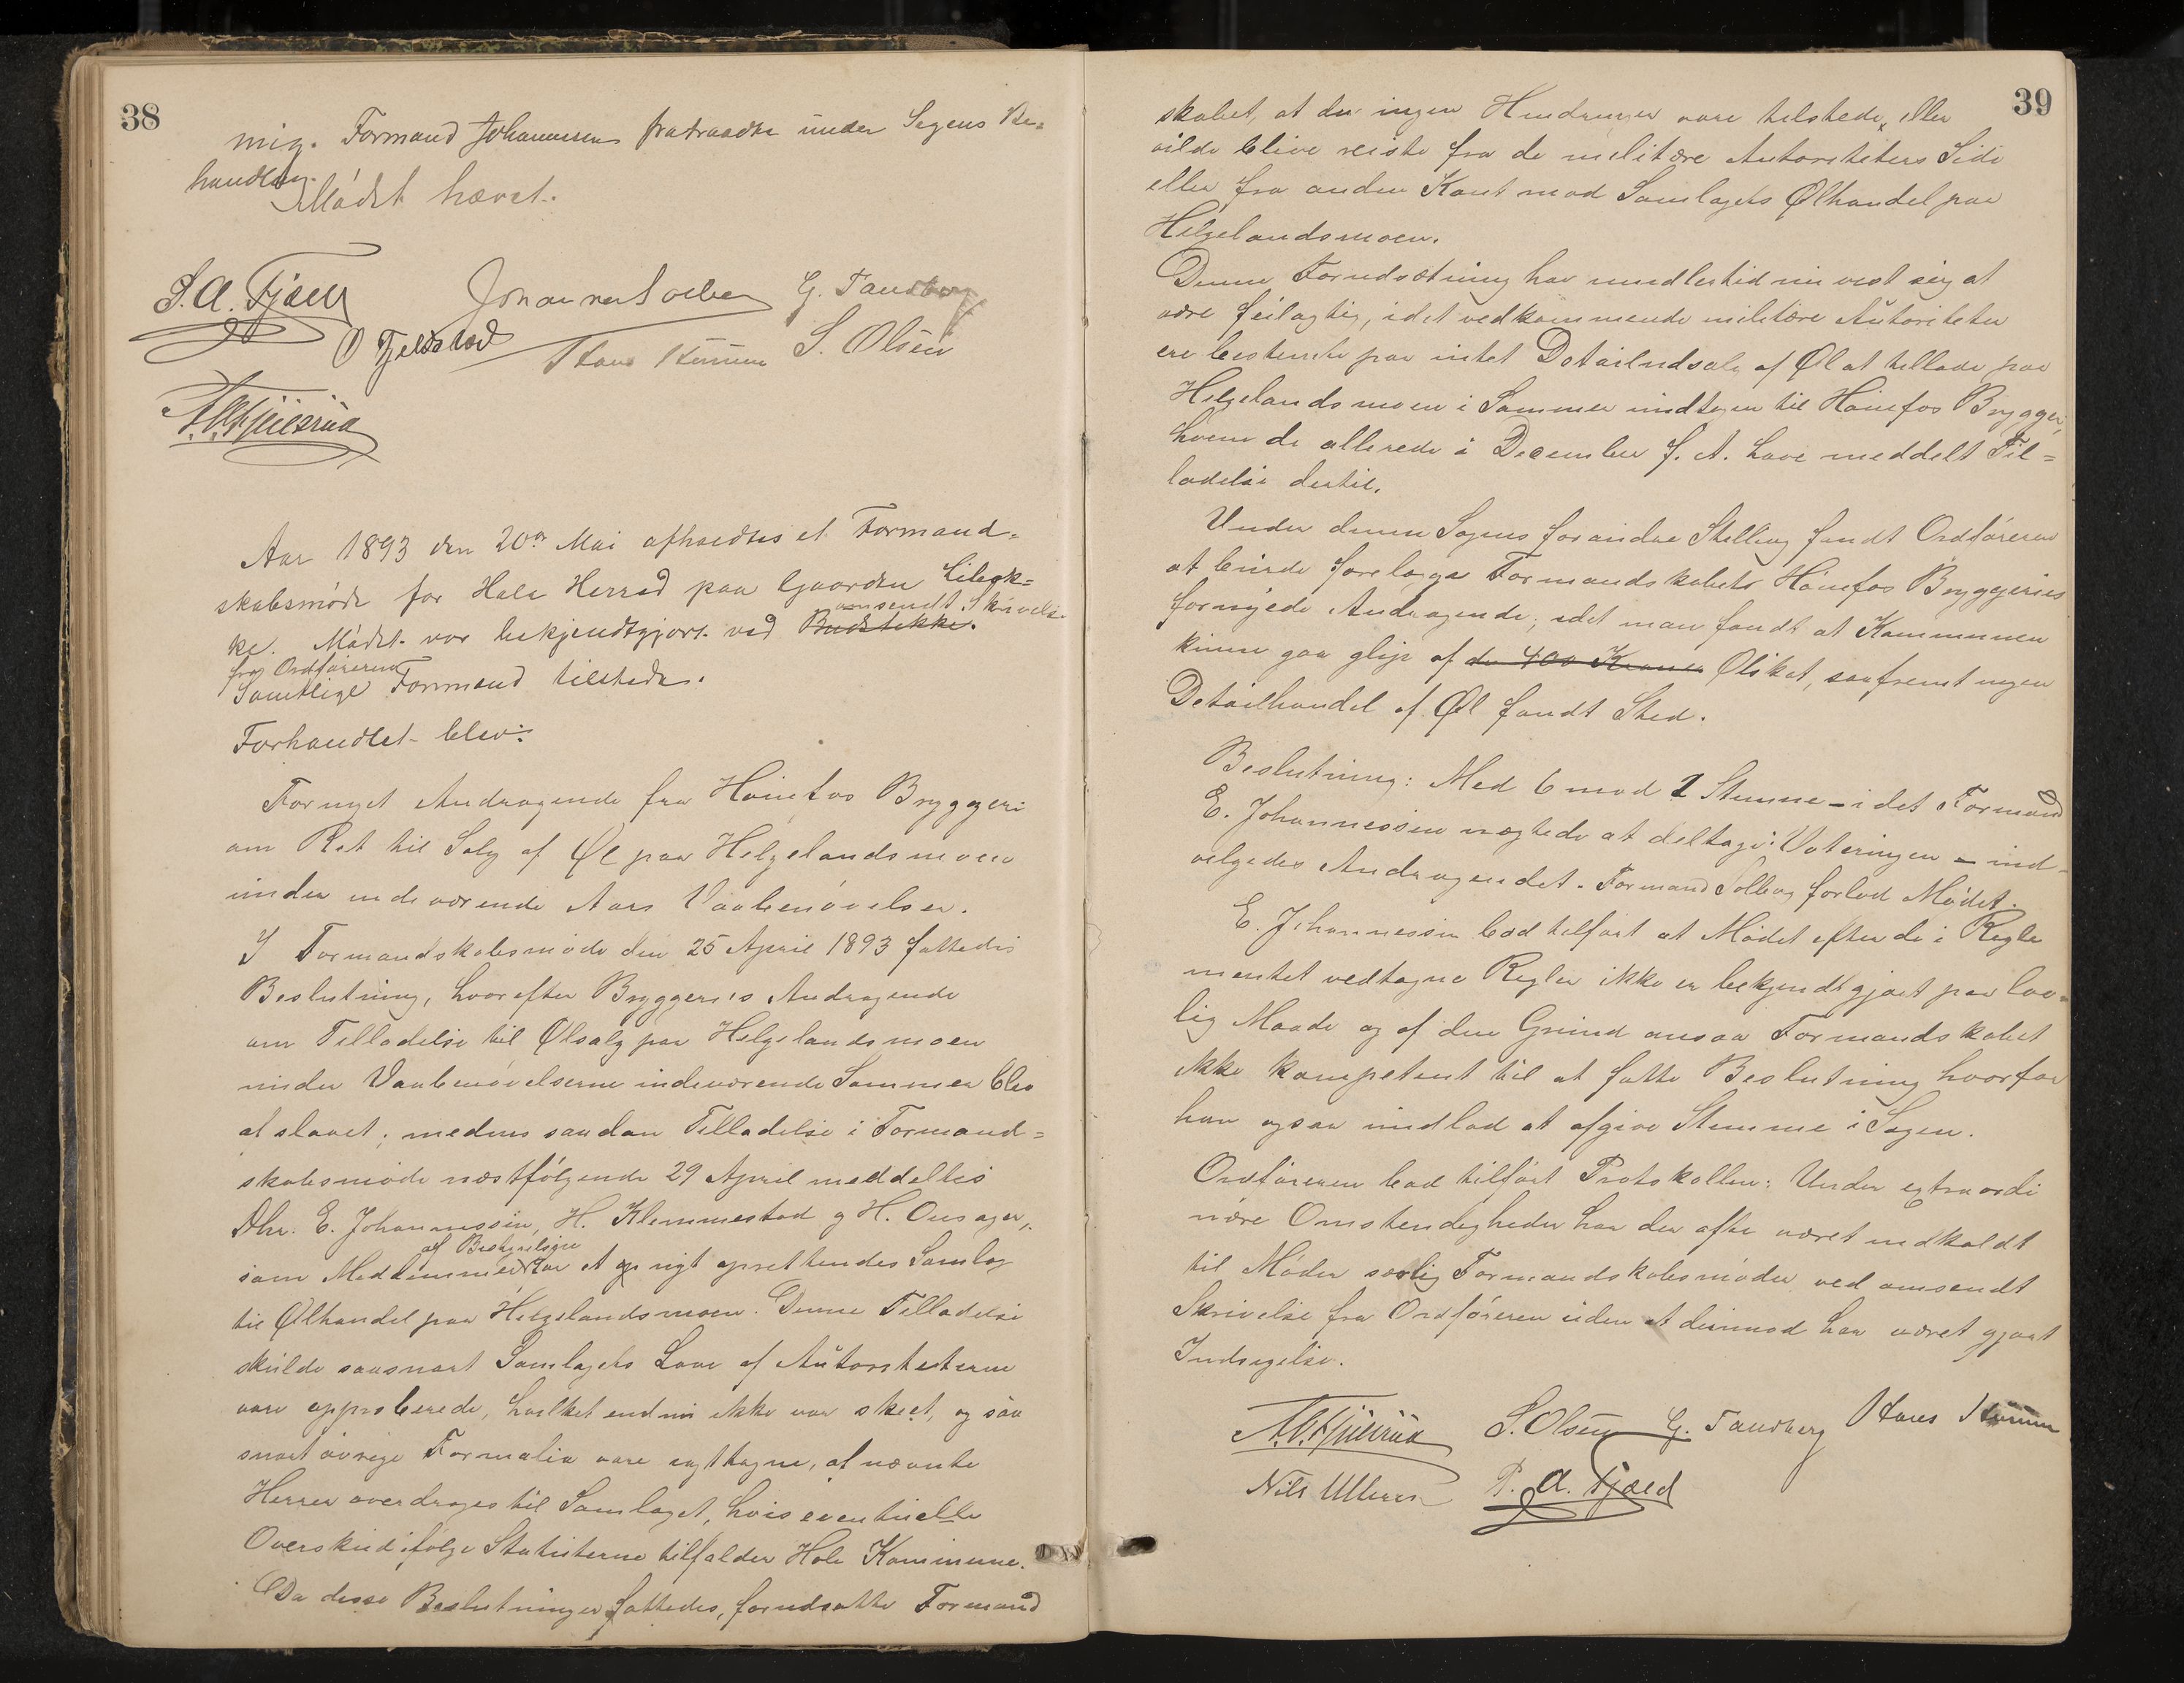 38
mig. Formand Johannesen fratraadte under Sagens Be=
handling.
Mödet hævet.
G. Tandberg
O Fjeldstad
S. Olsen
Aar 1893 den 20de Mai afholdtes et Formand=
skabsmöde for Hole Herred paa Gaarden Libak=
omsendt Skrivelse
ke. Mödet var bekjendtgjort ved Budstikke.
fra Ordföreren
Samtlige Formænd tilstede.
Forhandlet blev:
Fornyet Andragende fra Hönefos Bryggeri
om Ret til Salg af Øl paa Helgelandsmoen
under indeværende Aars Vaabenövelser.
I Formandskabsmöde den 25 April 1893 fattedes
Beslutning, hvorefter Bryggeri's Andragende
om Tilladelse til Ølsalg paa Helgelandsmoen
under Vaabenövelserne indeværende Sommer blev
afslaaet; medens saadan Tilladelse i Formand=
skabsmöde næstfölgende 29 April meddeltes
Dhr. E. Johannessen, H. Klemmestad og H. Onsager,
af Bestyrelsen
som Medlemmer for et nyt oprettendes Samlag
til Ølhandel paa Helgelandsmoen. Denne Tilladelse
skulde saasnart Samlagets Love af Autoriteterne
vare approberede, hvilket endnu ikke var skeet, og saa
snart övrige Formalia vare iagttagne, af nævnte
Herrer overdrages til Samlaget, hvis eventuelle
Overskud ifölge Statuterne tilfalder Hole Kommune.
Da disse Beslutninger fattedes, forudsatte Formand
39
skabet, at der ingen Hindringer vare tilstede, eller
vilde blive reiste fra de militære Autoriteters Side
eller fra anden Kant mod Samlagets Ølhandel paa
Helgelandsmoen.
Denne Forudsætning har imidlertid nu vist sig at
være feilagtig, idet vedkommende militære Autoriteter
ere bestemte paa intet Detailudsalg af Øl at tillade paa
Helgelandsmoen i Sommer undtagen til Hönefos Bryggeri,
hvem de allerede i December f. A. have meddelt Til=
ladelse dertil.
Under denne Sagens forandre Stilling fandt Ordföreren
at burde forelægge Formandskabet Hönefos Bryggeries
fornyede Andragende; idet man fandt at Kommunen
kunne gaa glip af de 400 Kroner Ølskat, saafremt ingen
Detailhandel af Øl fandt Sted.
Beslutning: Med 6 mod 1 Stemme – idet Formand
E. Johannessen nægtede at deltage i Voteringen – ind=
velgedes Andragendet. Formand Solberg forlod Mödet.
E. Johannessen bad tilfört at Mödet efter de i Regle
mentet vedtagne Regler ikke er bekjendtgjort paa lov=
lig Maade og af den Grund ansaa Formandskabet
ikke kompetent til at fatte Beslutning hvorfor
han ogsaa undlod at afgive Stemme i Sagen.
Ordföreren bad tilfört Protokollen: Under extraordi
nære Omstendigheder har der ofte været indkaldt
til Möder særlig Formandskabsmöder ved omsendt
Skrivelse fra Ordföreren uden at derimod har været gjort
Indsigelse.
S. Olsen G. Tandberg
Nils Ulleren